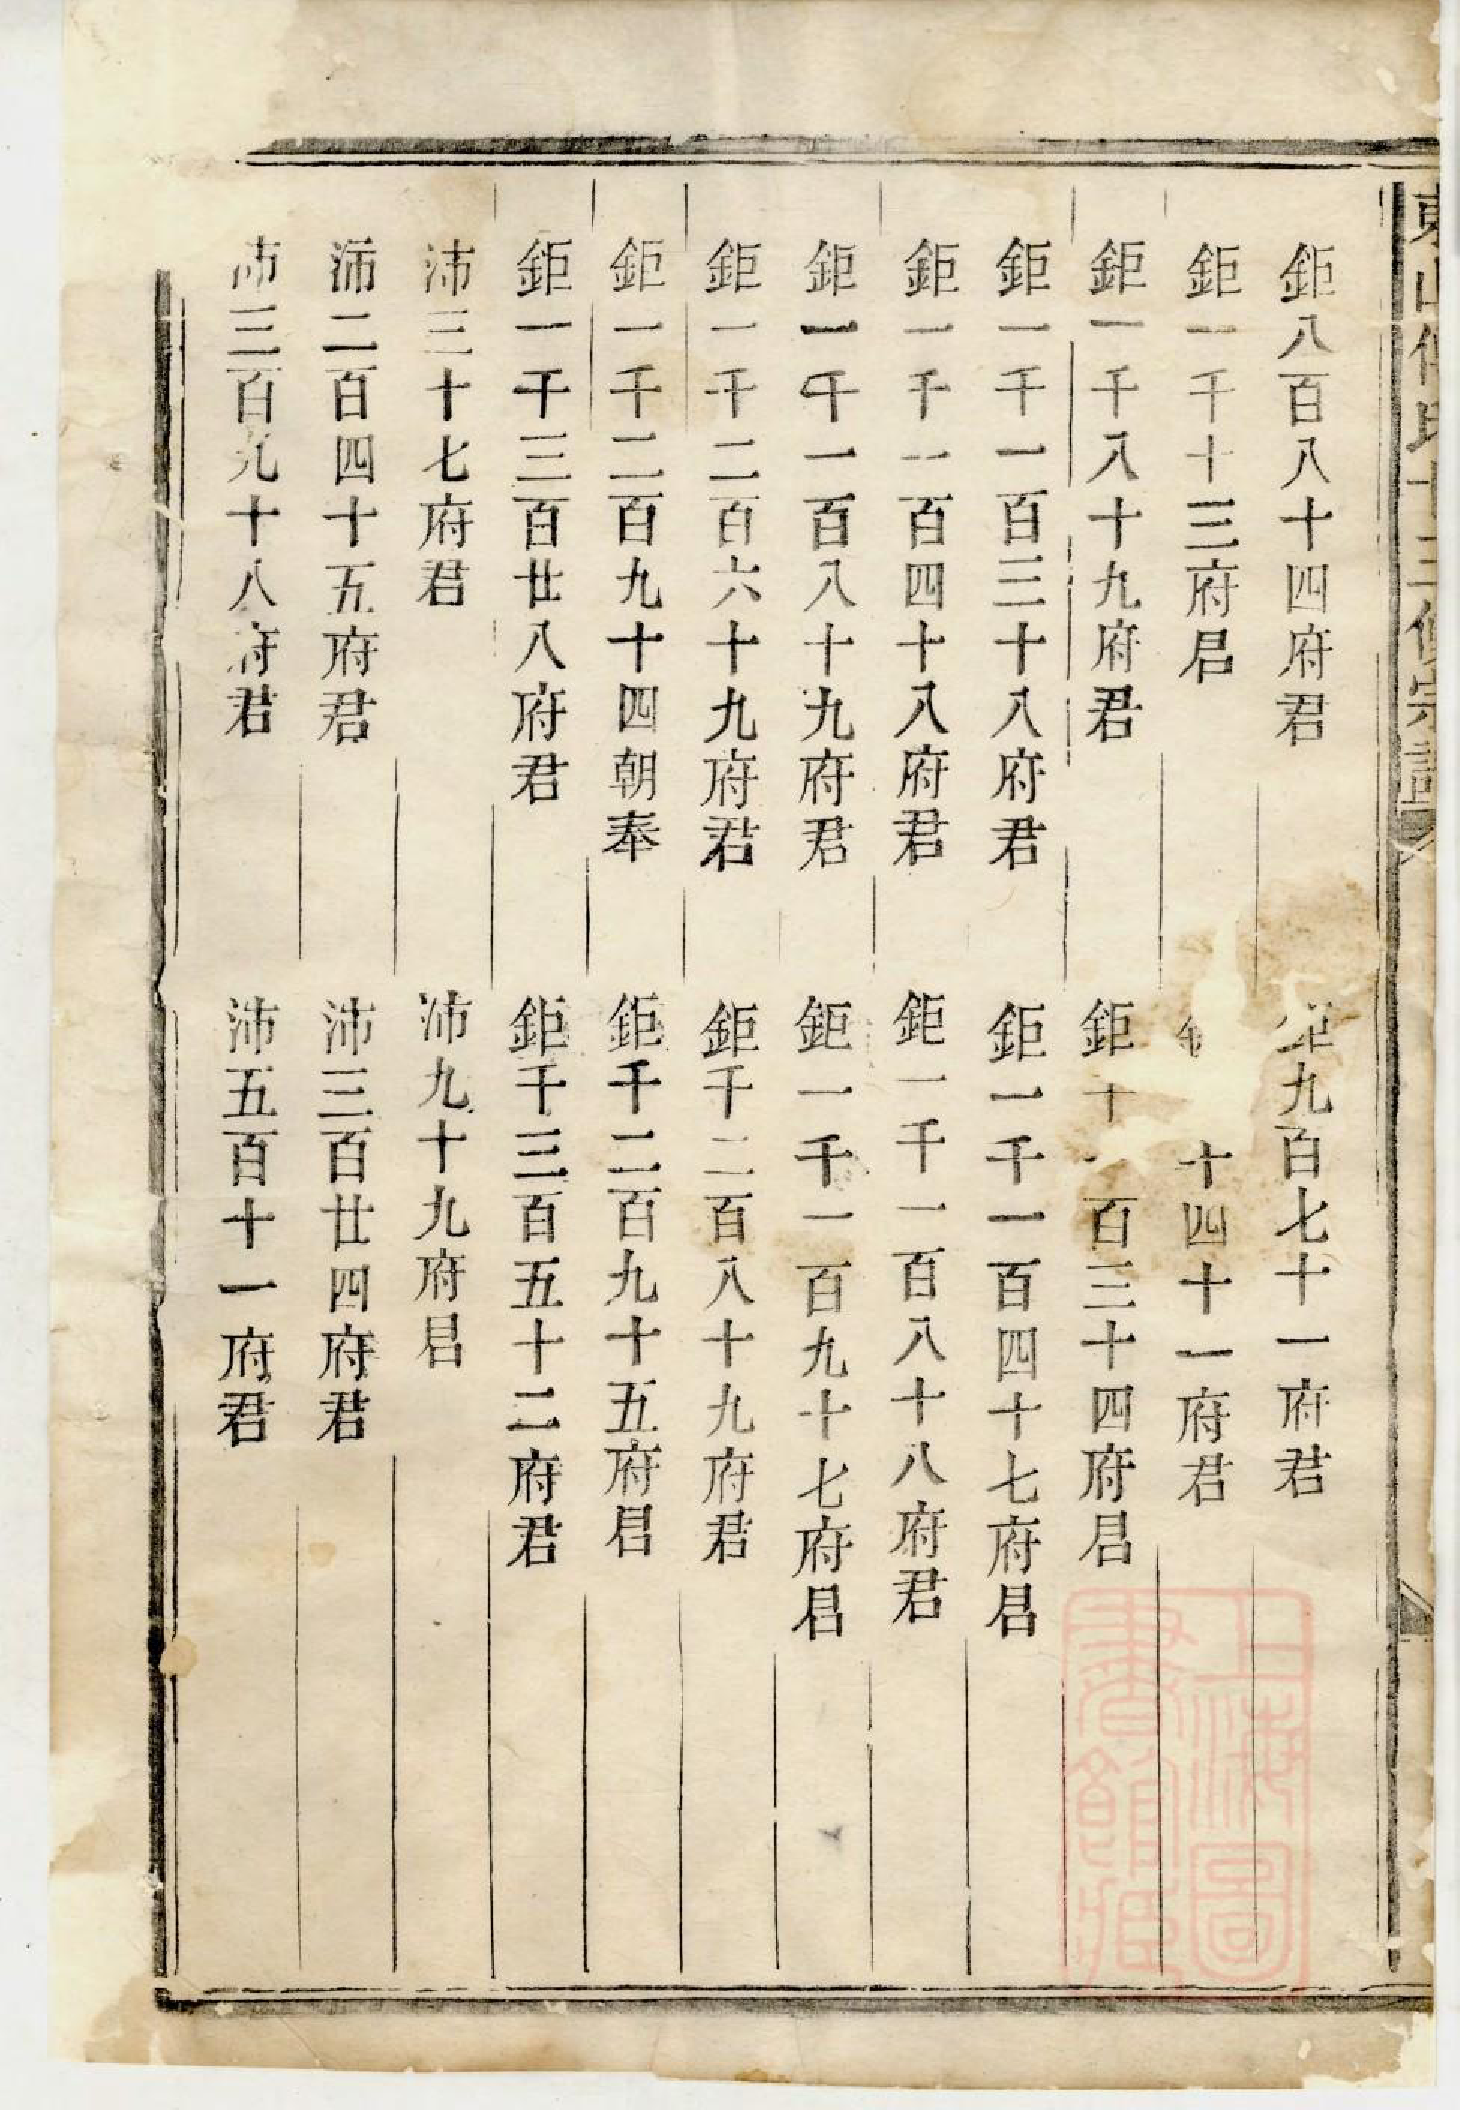 鉅八百八十四府君
鉅九百七十一府君
鉅一千十三府君
十四十一府君
鉅一千八十九府君
鉅千一百三十四府君
鉅一千一百三十八府君
鉅一千一百四十七府君
鉅一千一百四十八府君
鉅一千一百八十八府君
鉅一千一百八十九府君
鉅一千一百九十七府君
鉅一千二百六十九府君
鉅千二百八十九府君
鉅一千二百九十四朝奉
鉅千二百九十五府君
鉅一千三百廿八府君
鉅千三百五十二府君
沛三十七府君
沛九十九府君
沛二百四十五府君
沛三百廿四府君
沛三百九十八府君
沛五百十一府君
上海圖
書館藏